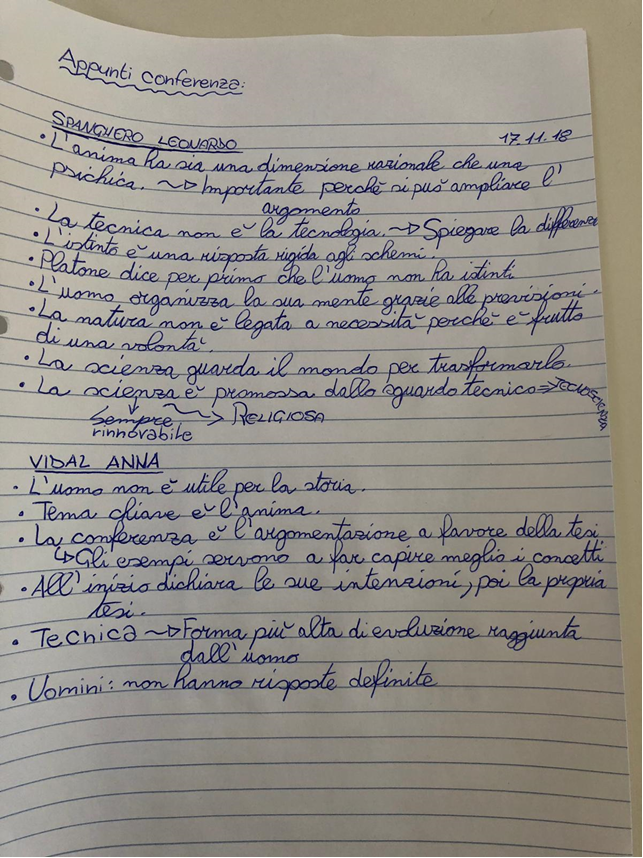 Appunti conferenza:
SPANGHERO LEONARDO 17.11.18
• L'anima ha sia una dimensione razionale che una
psichica. ~> Importante perchè si può ampliare l'
argomento
• La tecnica non è la tecnologia. ~> Spiegare la differenza
• L'istinto è una risposta rigida agli schemi.
• Platone dice per primo che l'uomo non ha istinti
• L'uomo organizza la sua mente grazie alle previsioni.
• La natura non è legata a necessità perchè è frutto
di una volontà.
• La scienza guarda il mondo per trasformarlo.
• La scienza è promossa dallo sguardo tecnico => TECNOSCIENZA
Sempre ~> RELIGIOSA
rinnovabile
VIDAL ANNA
• L'uomo non è utile per la storia.
• Tema chiave è l'anima.
• La conferenza è l'argomentazione a favore della tesi
↳ Gli esempi servono a far capire meglio i concetti
• All'inizio dichiara le sue intenzioni, poi la propria
tesi.
• Tecnica ~> Forma più alta di evoluzione raggiunta
dall'uomo
• Uomini: non hanno risposte definite